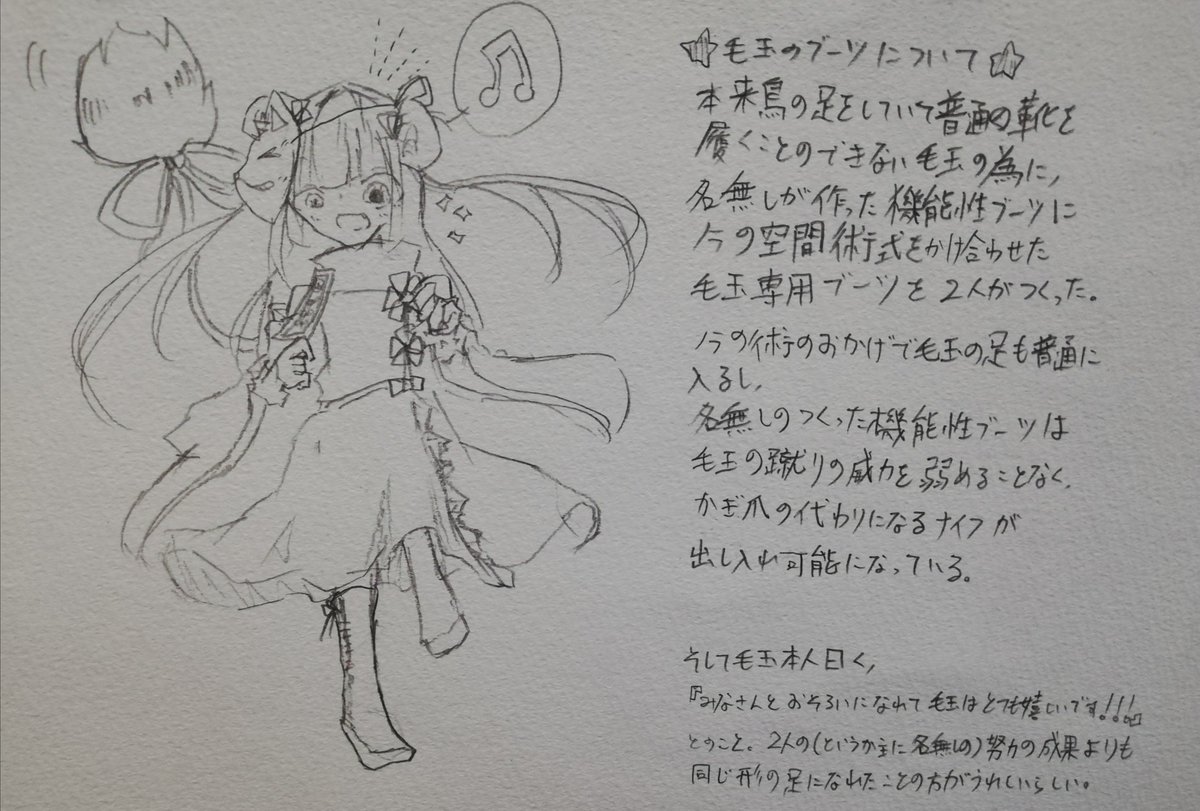 毛玉のブーツについて
本来鳥の足をしていて普通の靴を
履くことのできない毛玉の為に、
名無しが作った機能性ブーツに
ノラの空間術式をかけ合わせた
毛玉専用ブーツを2人がつくった。
ノラの術のおかげで毛玉の足も普通に
入るし、
名無しのつくった機能性ブーツは
毛玉の蹴りの威力を弱めることなく、
かぎ爪の代わりになるナイフが
出し入れ可能になっている。
そして毛玉本人曰く、
『みなさんとおそろいになれて毛玉はとても嬉しいです!!!』
とのこと。2人の(というか主に名無しの)努力の成果よりも
同じ形の足になれたことの方がうれしいらしい。